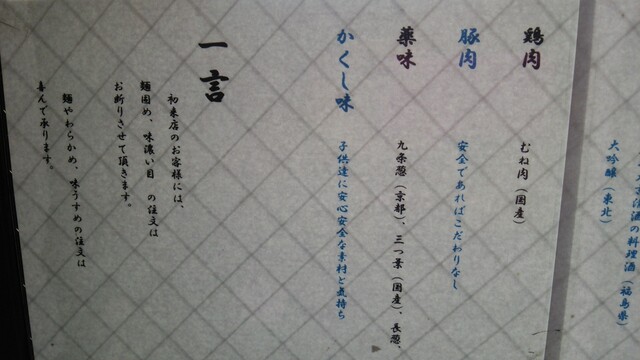 清酒の料理酒（福島県）
大吟醸（東北）
鶏肉　むね肉（国産）
豚肉　安全であればこだわりなし
薬味　九条葱（京都）、三つ葉（国産）、長葱、
かくし味　子供達に安心安全な素材と気持ち
一言
初来店のお客様には、
麺固め、味濃い目　の注文は
お断りさせて頂きます。
麺やわらかめ、味うすめの注文は
喜んで承ります。